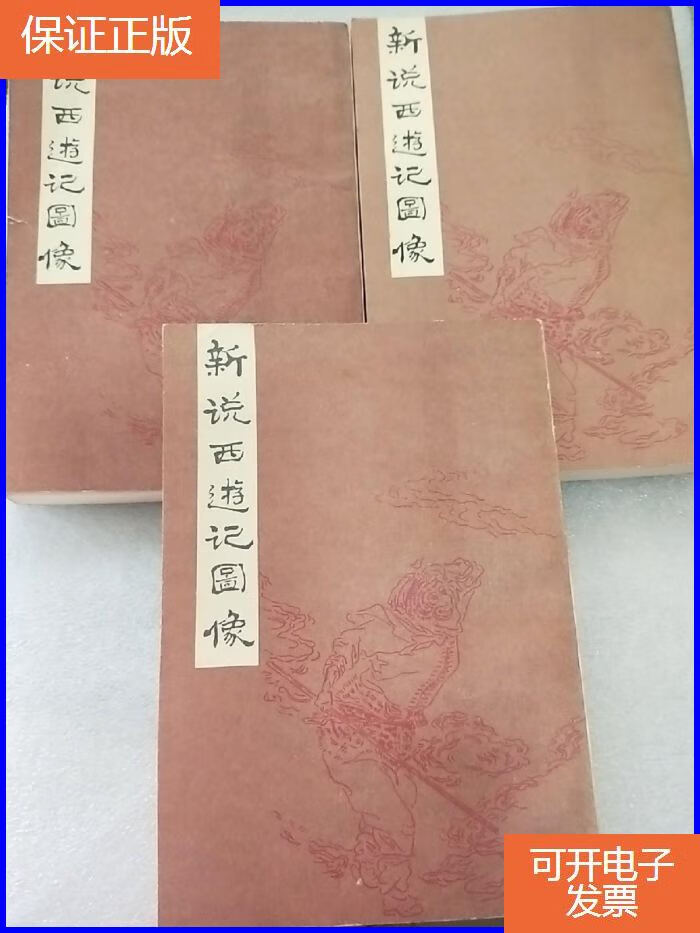 保证正版
说西遊记圖像
新说西遊记圖像
新说西遊记圖像
可开电子
发票